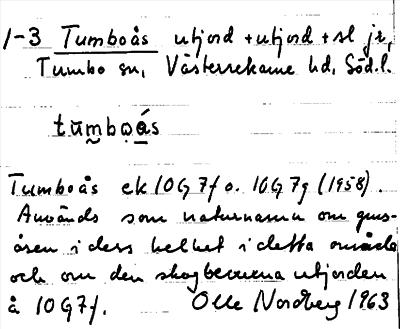 1-3 Tumboås utjord + utjord + sl jr,
Tumbo sn, Västerrekarne hd, Södl.
tumboås
Tumboås ek 10G 7f o. 10G 7g (1958).
Används som naturnamn om grus-
åsen i dess helhet i detta område
och om den skogbevuxna utjorden
å 10G7f. Olle Nordberg 1963